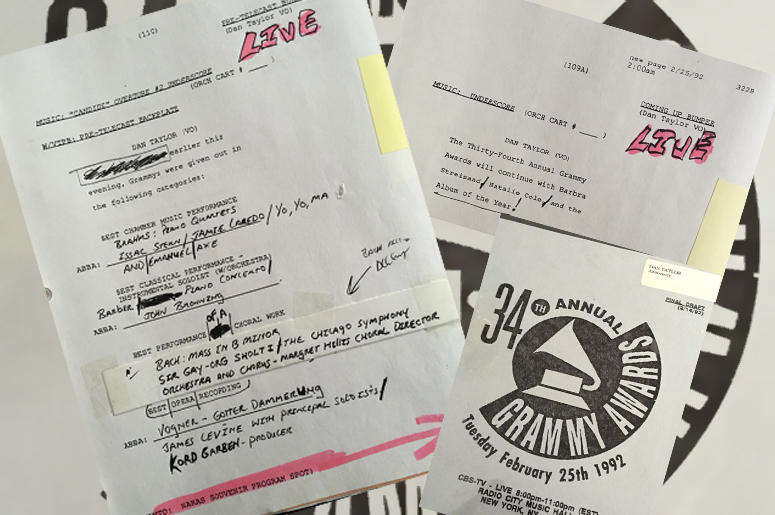 (110)
PRE-TELECAST BUMPER
(Dan Taylor VO)
LIVE
MUSIC: "CANDIDE" OVERTURE #2 UNDERSCORE
(ORCH CART # ___ )
W/CTPR: PRE-TELECAST BACKPLATE
DAN TAYLOR (VO)
earlier this
evening, Grammys were given out in
the following categories:
BEST CHAMBER MUSIC PERFORMANCE
BRAHMS: PIANO QUARTETS
ABBA: ISSAC STERN / JAMIE LAREDO / YO, YO, MA
AND EMANUEL AXE
BEST CLASSICAL PERFORMANCE -
INSTRUMENTAL SOLOIST (W/ORCHESTRA)
BARBER PIANO CONCERTO /
ABBA: JOHN BROWNING
BACH
BEST PERFORMANCE OF A CHORAL WORK
BACH: MASS IN B MINOR
SIR GAY-ORG SHOLTI / THE CHICAGO SYMPHONY
ORCHESTRA AND CHORUS - MARGRET HILLIS CHORAL DIRECTOR
BEST OPERA RECORDING
VOGNER - GOTTER DAMMERUNG
ABBA: JAMES LEVINE WITH PRINCIPAL SOLOISTS /
KORD GARBEN - PRODUCER
INTO: NARAS SOUVENIR PROGRAM SPOT)
new page 2/25/92
2:00am
322B
(109A)
COMING UP BUMPER
(Dan Taylor VO)
LIVE
MUSIC: UNDERSCORE (ORCH CART # ___ )
DAN TAYLOR (VO)
The Thirty-Fourth Annual Grammy
Awards will continue with Barbra
Streisand / Natalie Cole / and the
Album of the Year!
DAN TAYLOR
ANNOUNCER
FINAL DRAFT
34TH ANNUAL
GRAMMY AWARDS
Tuesday February 25th 1992
CBS-TV - LIVE 8:00pm-11:00pm (EST)
RADIO CITY MUSIC HALL
NEW YORK, NY